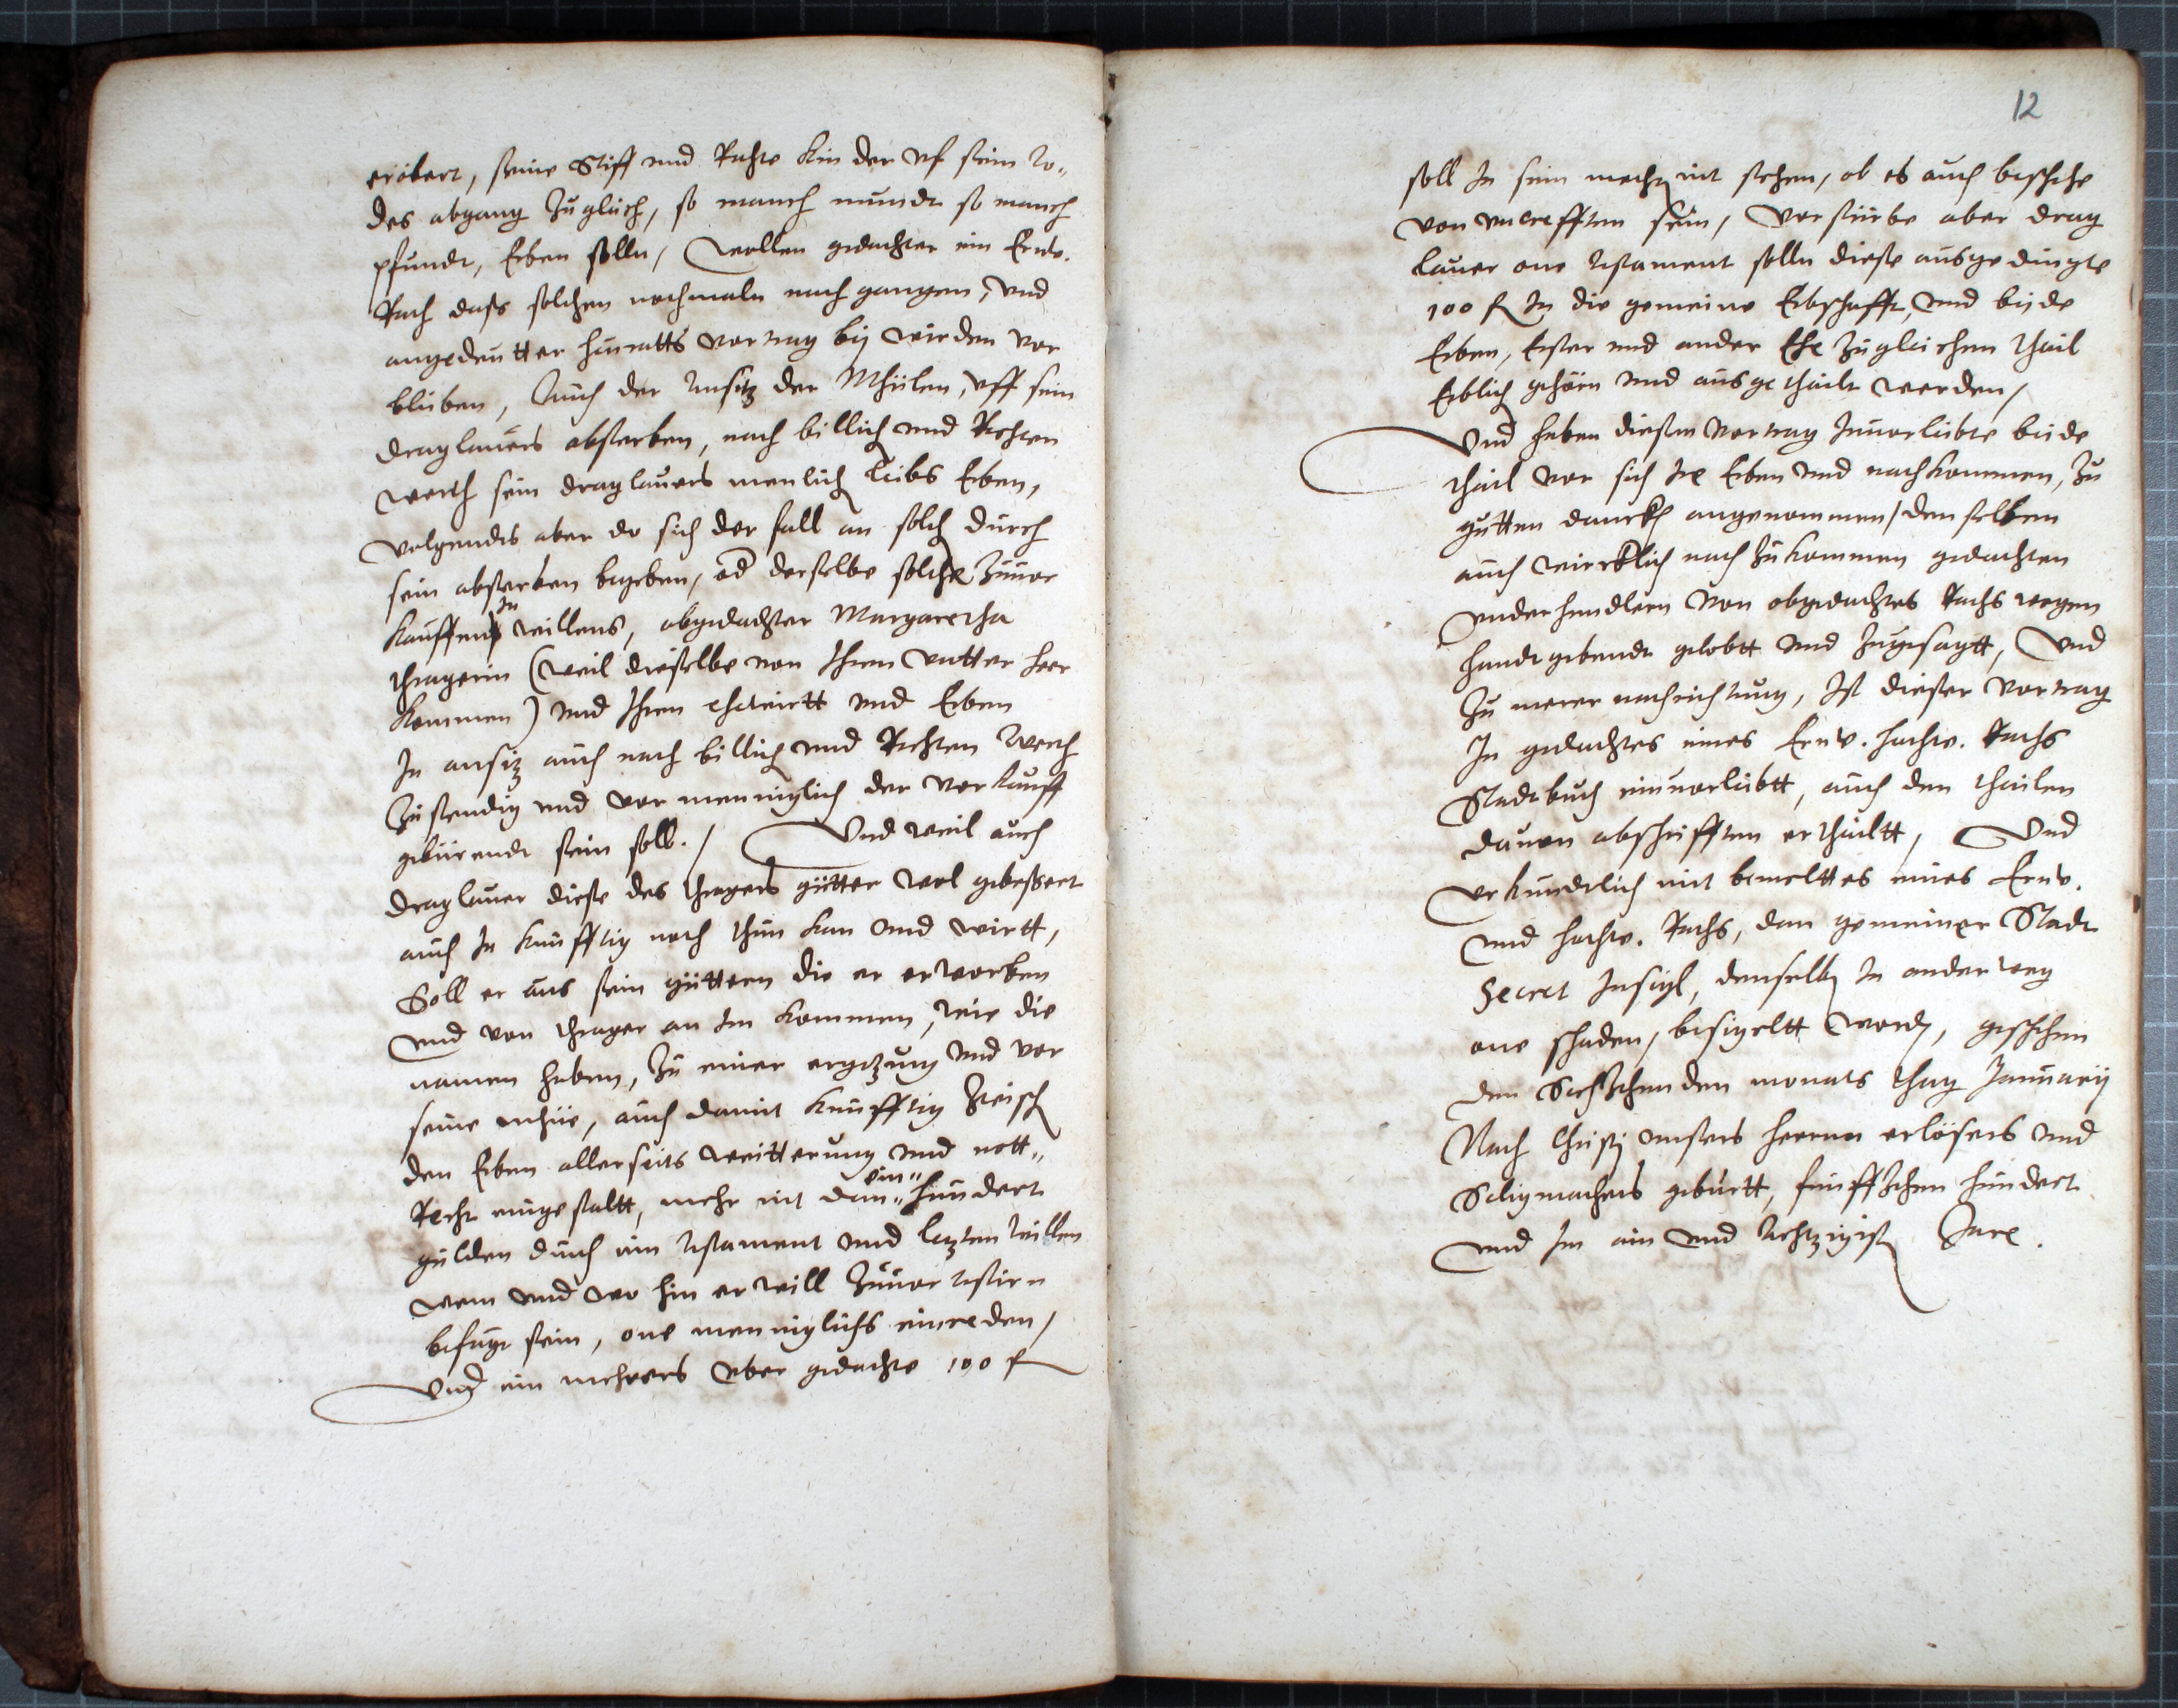 eröbert, seine Stiff und Rechte Kin der uf sein to„
des abgang zu gleich, so manch mundt so manch
pfundt, Erben solln, Wollen gedachter ein Ernv.
Rath dass solchen nochmaln nach gangen, und
angedeutter heiratts vertrag bej wirden ver
bleiben, Auch der Ansitz der Mhülen, uff sein
Draglauers absterben, nach billich und Rechten
werth sein Draglauers menlich Leibs Erben,
Volgendes aber do sich der fall an solch durch
sein absterben begeben, od derselbe solche zuuor
kauffens zu willens, obgedachter Margaretha
thragerin (weil dieselbe von Ihrem Vatter heer
kommen) und Ihren ehewirtt und Erben
In ansitz auch nach billich und Rechten Werth
zustendig und vor menniglich der Verkauff
gebürendt sein soll. / Und weil auch
Draglauer diese des thragers gütter Wol gebessert
auch In künfftig noch thun kan und wirtt,
Soll er aus sein güttern die er erworben
und von thrager an Im kommen, wie die
namen haben, zu einer ergetzung und vor
seine mhüe, auch damit künfftig zwisch
den Erben allerseits weitterung und nott„
Recht eingestaltt, mehr nit dan„ ein„ hundert
gülden durch ein Testament und letzten willen
wem und wo hin er will zuuor testirn
befugt sein, one menniglichs einreden,
Und ein mehrers uber gedachte 100 f
12
soll In sein macht nit stehen, ob es auch beschehe
von uncrefften sein, Verstürbe aber drag
lauer one testament solln diese ausgedingte
100 f In die gemeine Erbschafft, und beide
Erben, Erster und ander Ehe zugleichen thail
Erblich gehörn und ausgethailt werden,
Und haben diesen Vertrag Inuerleibte beide
thail vor sich Ire Erben und nachkommen, zu
gutten danckh angenommen, denselben
auch wircklich nach zukommen gedachten
underhendlern von obgedachtes Raths wegen
handtgebendt gelobtt und zugesagtt, Und
zu merer nachrichtung, Ist dieser Vertrag
In gedachtes eines Ernv. hochw. Raths
Stadtbuch einuorleibtt, auch den thailen
dauon abschrifften erthailtt, Und
Urkundtlich mit bemelttes eines Ernv.
und hochw. Raths, dan gemeiner Stadt
Secret Insigl, demselb In ander weg
one schaden, besigeltt word, geschehen
den Sechzehenden monats thag Januarij
Nach Christi unsers herren erlösers und
Seligmachers geburtt, fünffzehen hundert
und Im ain und Achtzigist Jare.